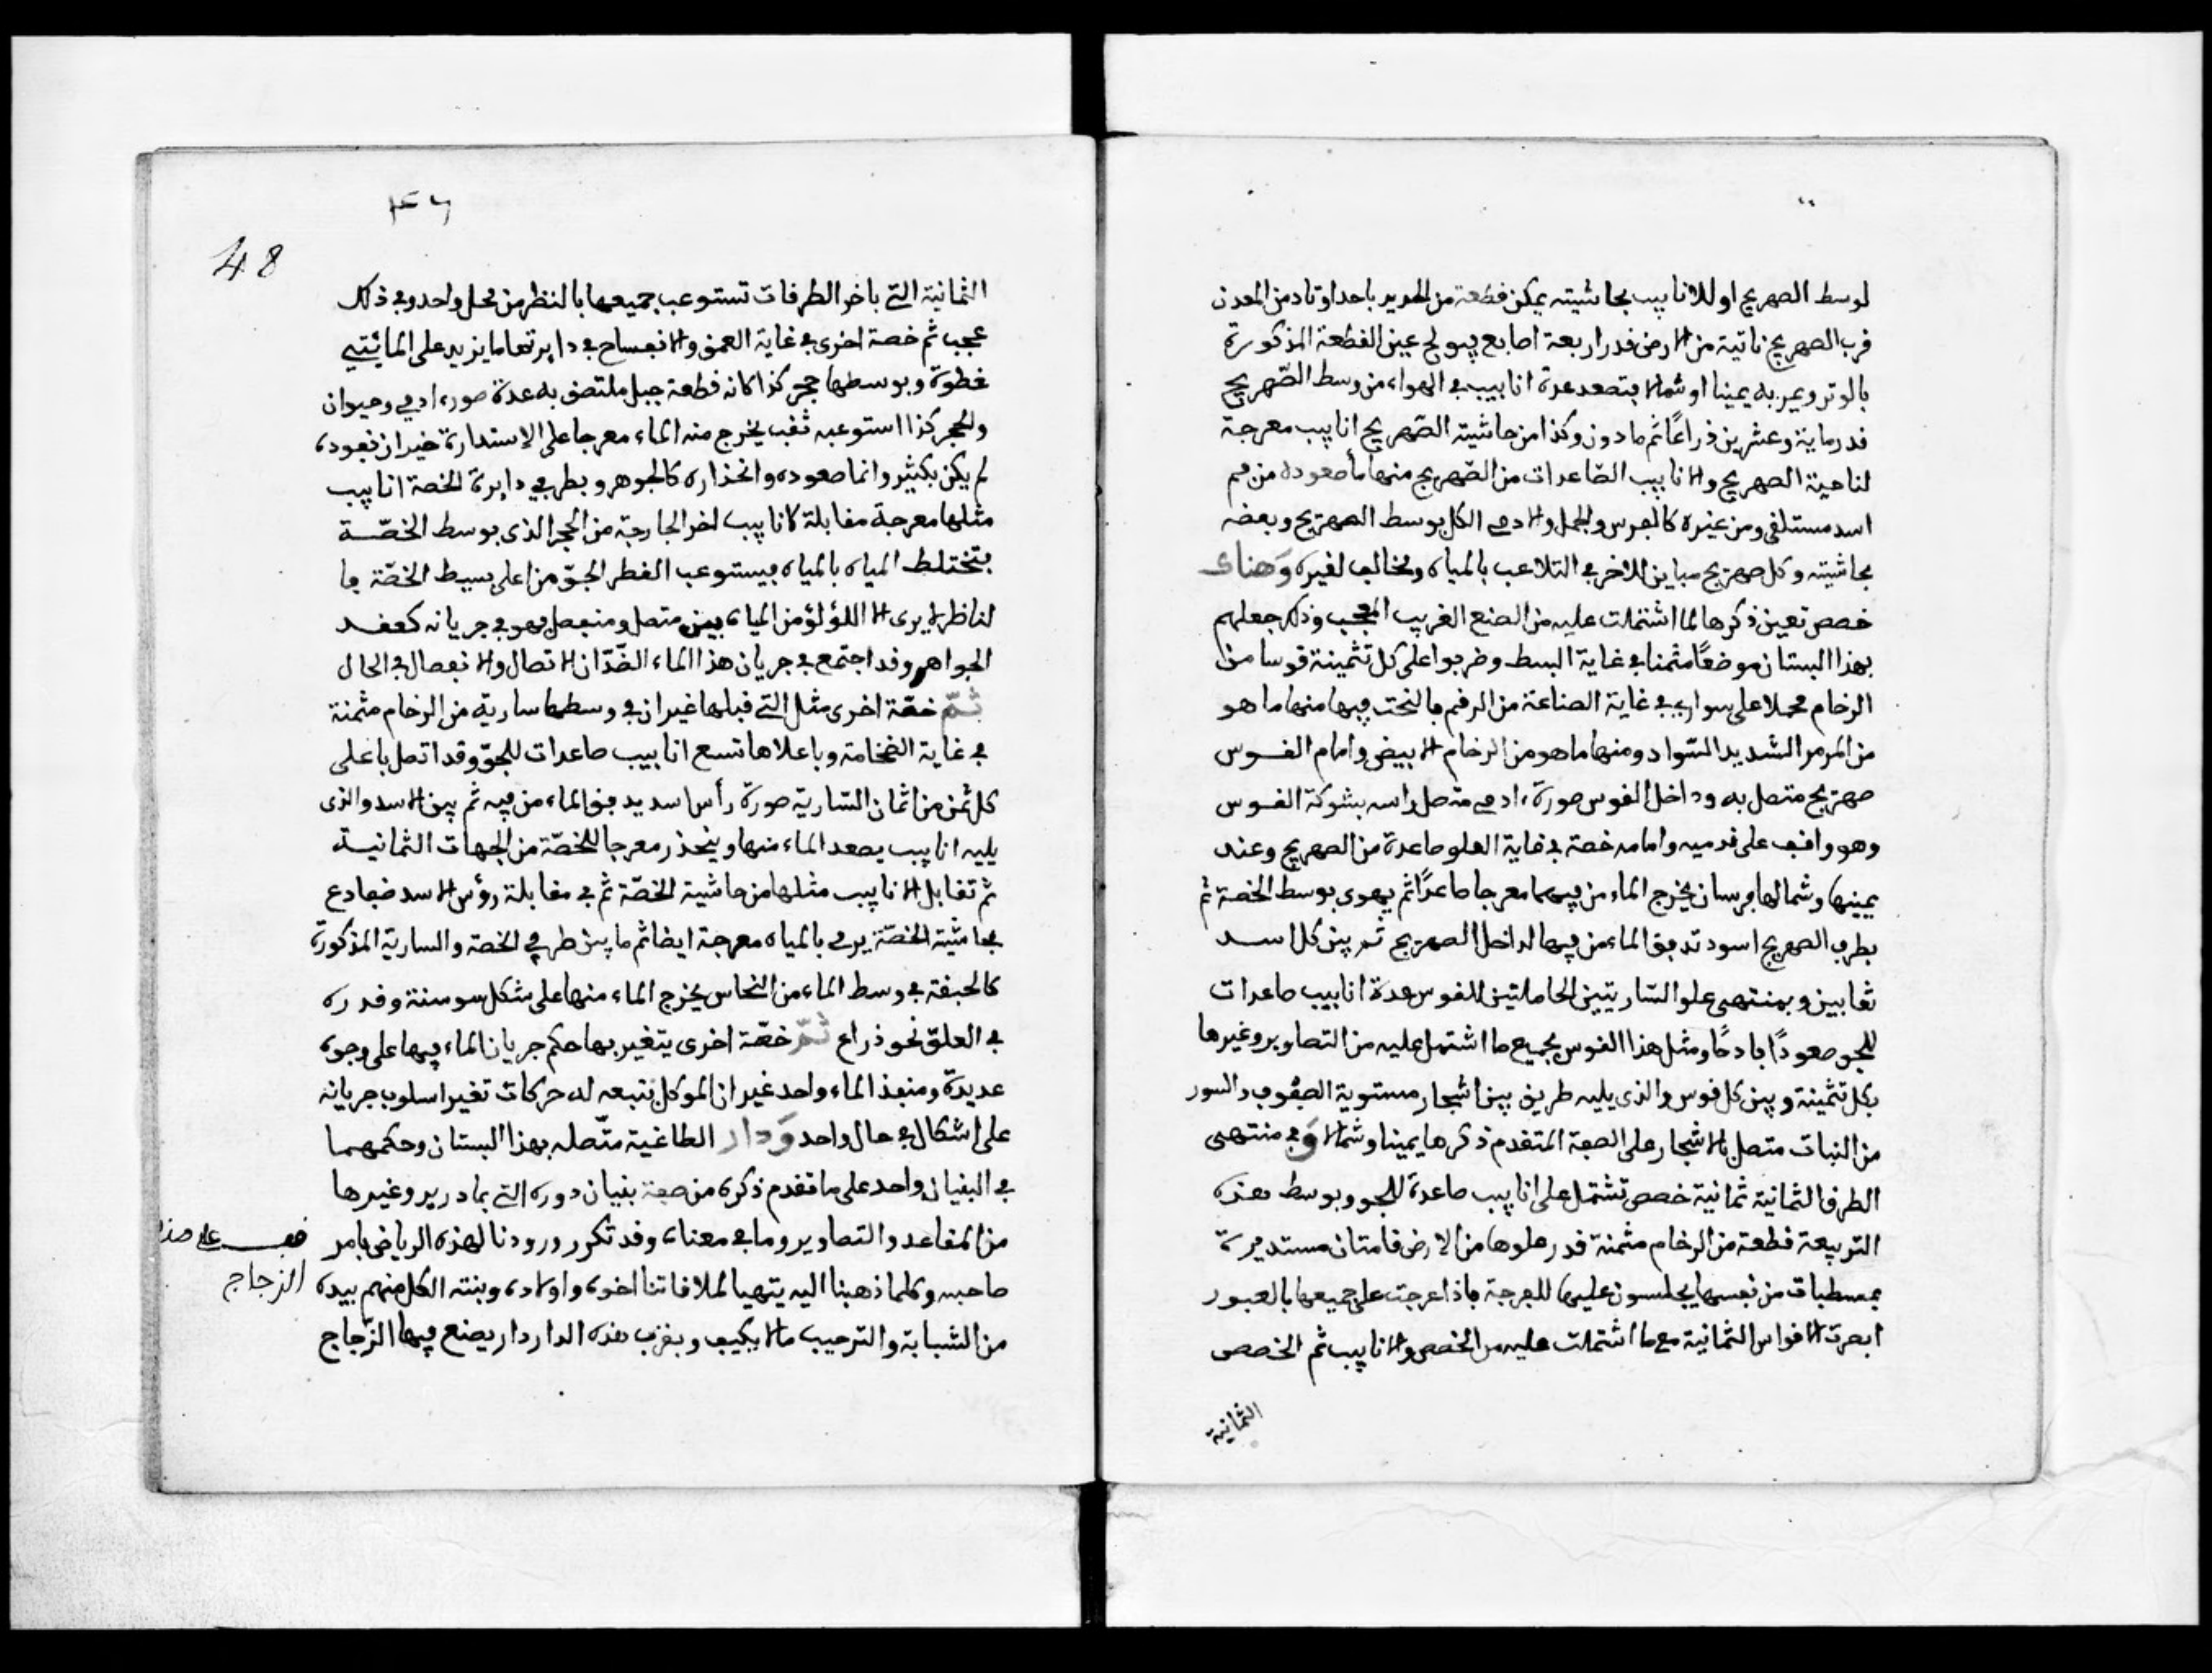 لوسط الصهريج او للانابيب بحاشيته يمكن قطعة من الحديد باحد اوتاد من المعدن
قرب الصهريج ناتية من الارض قدر اربعة اصابع يولج عين القطعة المذكورة
بالوتر ويمر به يمينا او شمالا فتصعد عدة انابيب في الهواء من وسط الصّهريج
قدر ماية وعشرين ذراعًا ثم ما دون وكذا من حاشية الصّهريج انابيب معرجة
لناحية الصهريج والانابيب الصّاعدات من الصّهريج منها ما صعوده من فم
اسد مستلقى ومن غيره كالفرس والجمل والادمي الكل بوسط الصهريج وبعضه
بحاشيته وكل صهريج مباين للاخر في التلاعب بالمياه ومخالف لغيره وَهناك
خصص تعين ذكرها لما اشتملت عليه من الصنع الغريب المعجب وذلك جعلهم
بهذا البستان موضعًا مثمنا في غاية البسط وضربوا على كل تثمينة قوسا من
الرخام محملا على سواري في غاية الصناعة من الرقم بالنحت فيها منها ما هو
من المرمر الشديد السّواد ومنها ما هو من الرخام الابيض وامام القوس
صهريج متصل به وداخل القوس صورة ادمي متصل راسه بشوكة القوس
وهو واقف على قدميه وامامه خصة في غاية العلو صاعدة من الصهريج وعند
يمينها وشمالها فرسان يخرج الماء من فيهما معرجا صاعدًا ثم يهوى بوسط الخصة ثم
بطرف الصهريج اسود تدفق الماء من فيها لداخل الصهريج ثم بين كل اسد
ثعابين وبمنتهى علو السّاريتين الحاملتين للقوس عدة انابيب صاعدات
للجو صعودًا فادحًا ومثل هذا القوس بجميع ما اشتمل عليه من التصاوير وغيرها
بكل تثمينة وبين كل قوس والذي يليه طريق بين اشجار مستوية الصفوف والسور
من النبات متصل بالاشجار على الصفة المتقدم ذكرها يمينا وشمالا وَفي منتهى
الطرق الثمانية ثمانية خصص تشتمل على انابيب صاعدة للجو وبوسط هذه
التربيعة قطعة من الرخام مثمنة قدر علوها من الارض قامتان مستديرة
بمسطبات من نفسها يجلسون عليها للفرجة فاذا عرجت على جميعها بالعبور
ابصرت الاقواس الثمانية مع ما اشتملت عليه من الخصص والانابيب ثم الخصص
الثمانية
48
الثمانية التي باخر الطرقات تستوعب جميعها بالنظر من محل واحد وفي ذلك
عجب ثم خصة اخرى في غاية العمق والانفساح في داير تعامها يزيد على المائتي
خطوة وبوسطها حجر كذا كانه قطعة جبل ملتصق به عدة صور ادمي وحيوان
والحجر كذا استوعبه ثقب يخرج منه الماء معرجا على الاستدارة غير ان نفوده
لم يكن بكثير وانما صعوده وانحذاره كالجوهر وبطرفي دايرة الخصة انابيب
مثلها معرجة مقابلة كانابيب اخر الخارجة من الحجر الذي بوسط الخصّة
فتختلط المياه بالمياه فيستوعب القطر الجوّ من اعلى بسيط الخصّة فا
لناظر لا يرى الا اللؤلؤ من المياه بين متصل ومنفصل فهو في جريانه كعقد
الجواهر وقد اجتمع في جريان هذا الماء الضّدّان الاتصال والانفصال في الحال
ثمّ خصّة اخرى مثل التي قبلها غير ان في وسطها سارية من الرخام مثمنة
في غاية الضخامة وباعلاها تسع انابيب صاعدات للجوّ وقد اتصل باعلى
كل ثمن من اثمان السّارية صورة رأس اسد يدفق الماء من فيه ثم بين الاسد والذى
يليه انابيب يصعد الماء منها وينحذر معرجا للخصّة من الجهات الثمانية
ثم تقابل الانابيب مثلها من حاشية الخصّة ثم في مقابلة رؤس الاسد ضفادع
بحاشية الخصّة يرمي بالمياه معرجة ايضا ثم ما بين طرفي الخصة والسارية المذكورة
كالحبقة في وسط الماء من النحاس يخرج الماء منها على شكل سوسنة وقدره
في العلوّ نحو ذراع ثمّ خصّة اخرى يتغير بها حكم جريان الماء فيها على وجوه
عديدة ومنفذ الماء واحد غير ان الموكل بنبعه له حركات تغير اسلوب جريانه
على اشكال في حال واحد وَدار الطاغية متّصله بهذا البستان وحكمهما
في البنيان واحد على ما تقدم ذكره من صفة بنيان دوره التي بمادريد وغيرها
من المقاعد والتصاوير وما في معناه وقد تكرر ورودنا لهذه الرياض بامر
صاحبه وكلما ذهبنا اليه يتهيا لملاقاتنا اخوه واولاده وبنته الكل منهم بيده
من الشبابة والترحيب ما لا يكيف وبقرب هذه الدار دار يصنع فيها الزّجاج
قف على
الزجاج